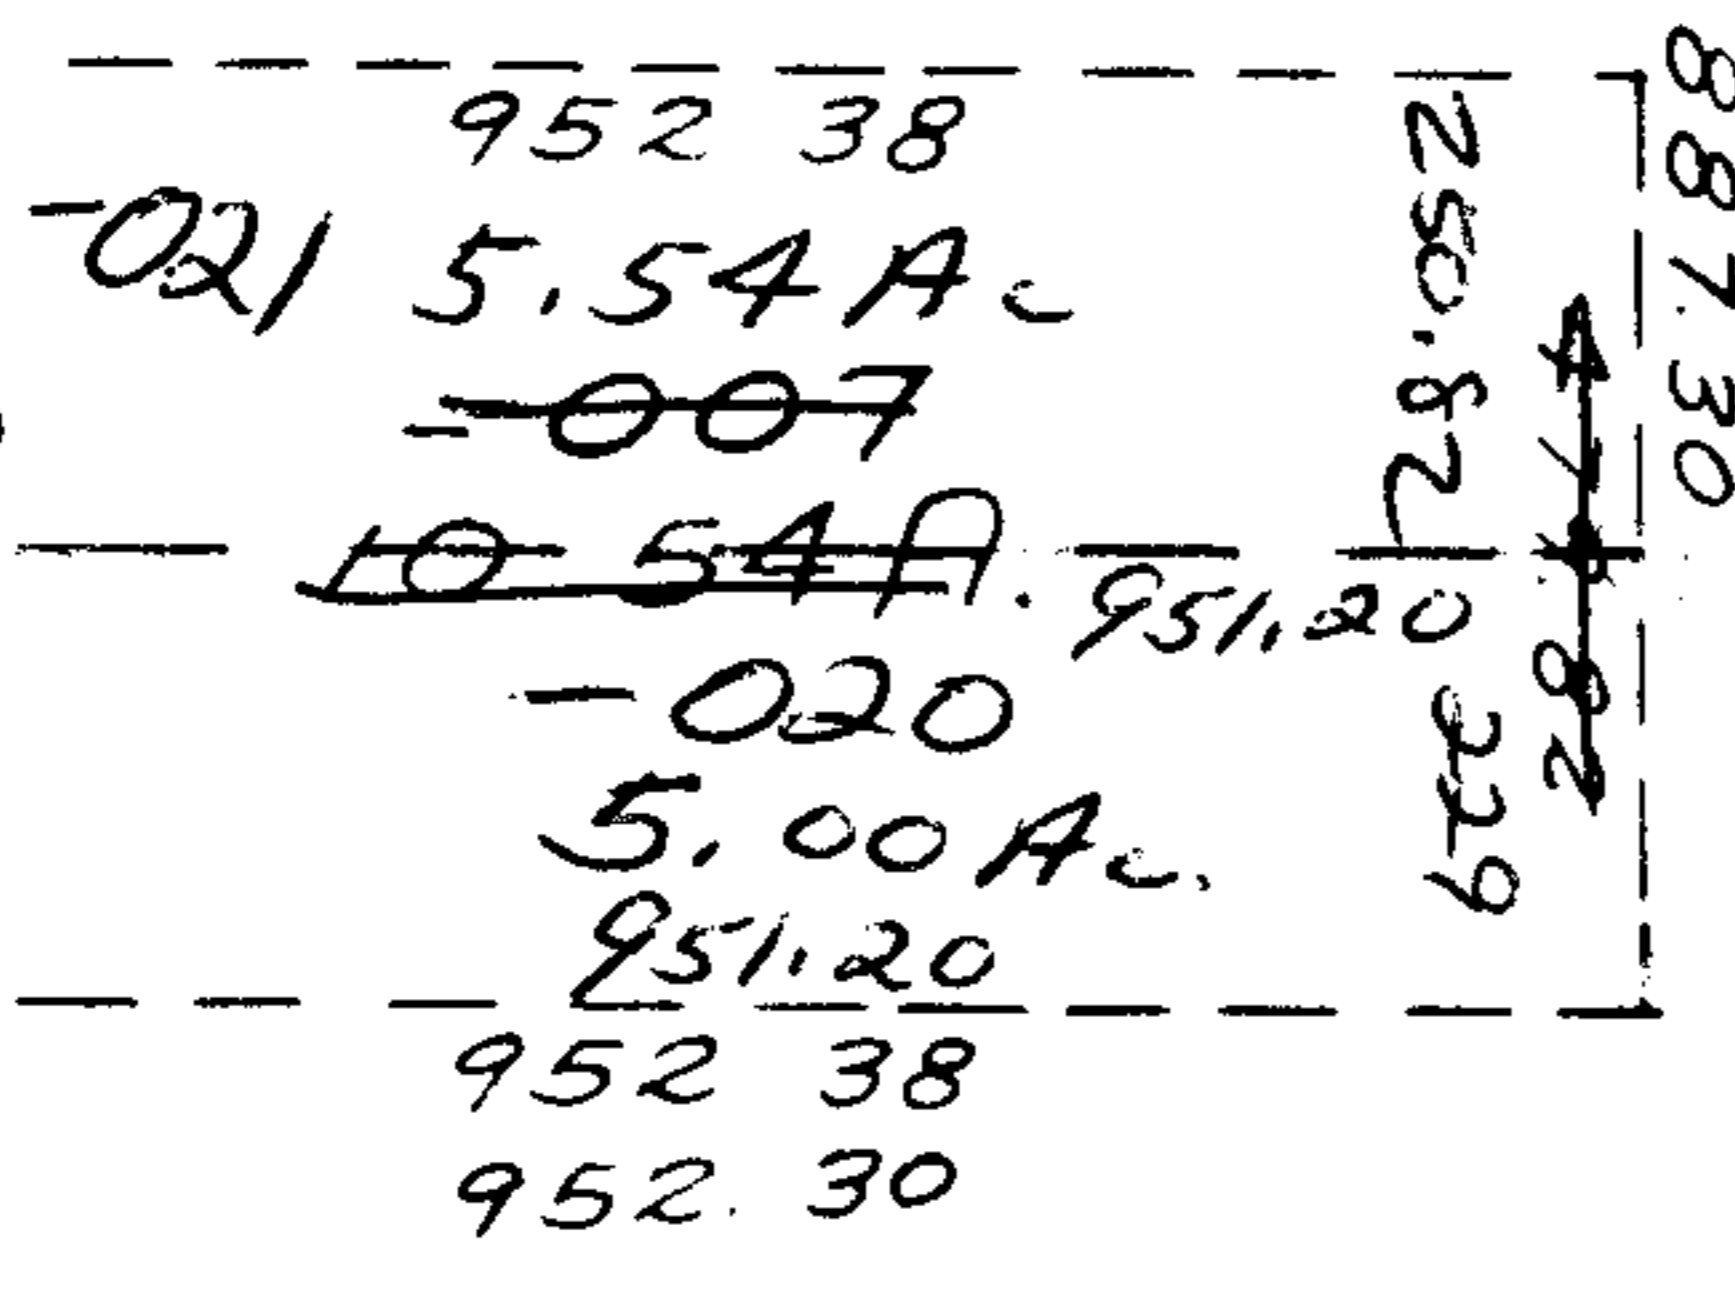 952 38
-021 5.54 Ac
-007
10 54A.
951.20
-020
5.00 Ac.
951.20
952 38
952. 30
250.87
229
887.30